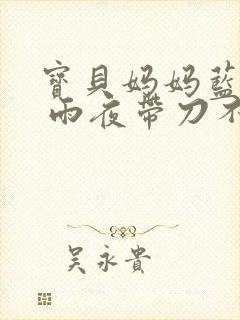 寶貝妈妈藍
雨夜帶刀不
吴永貴